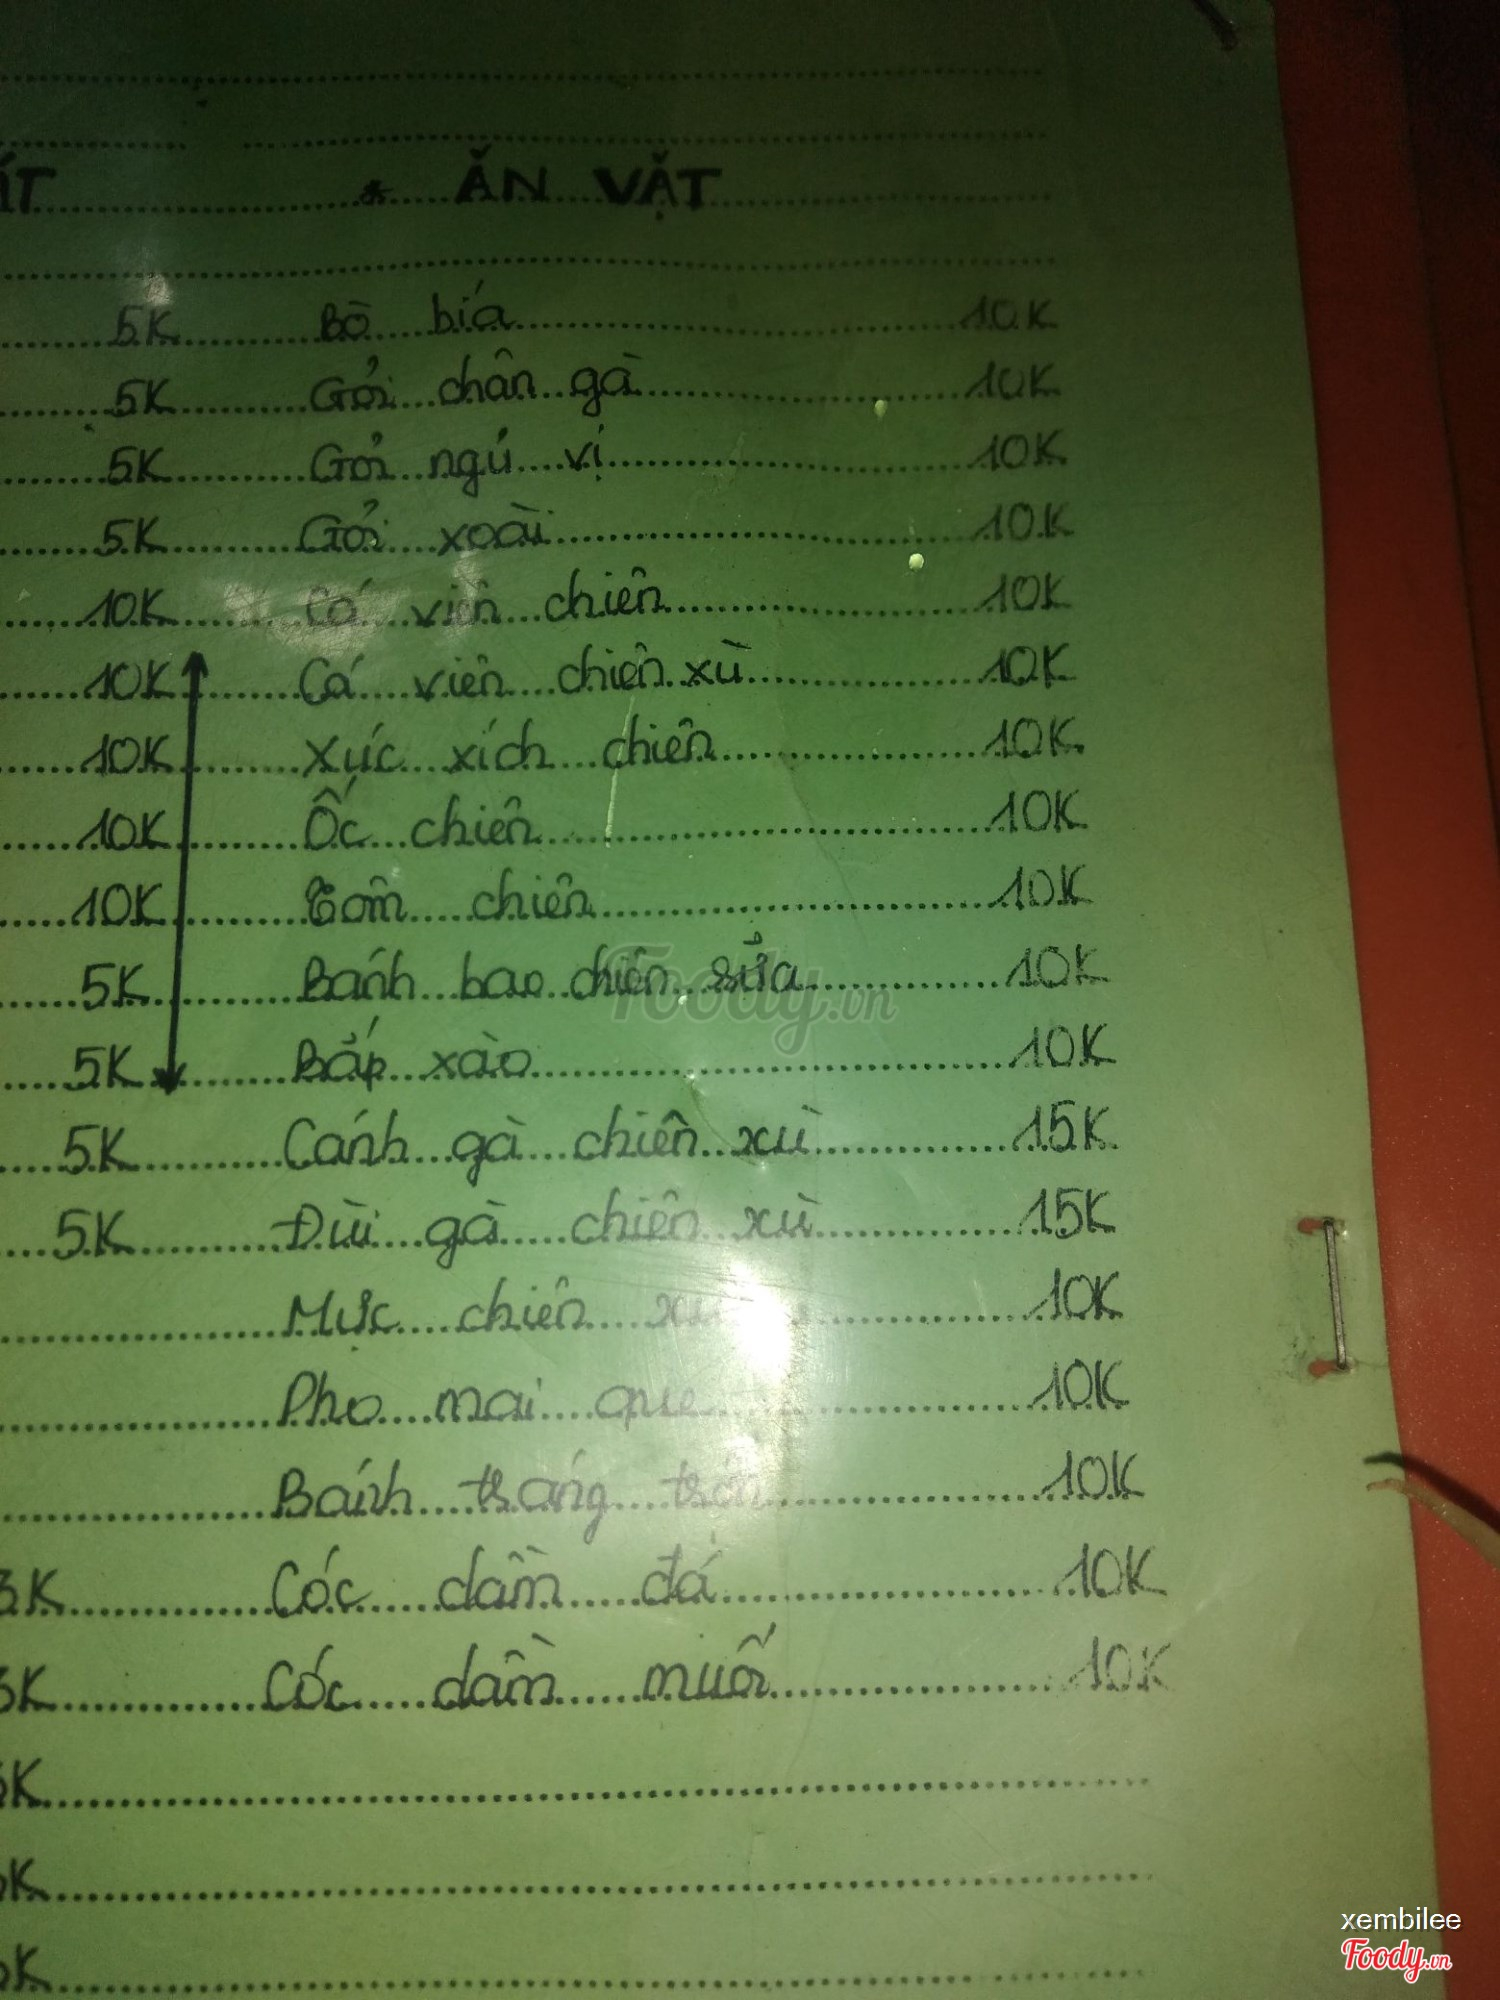 ÁT * ĂN VẶT
5K Bò bía 10K
5K Gỏi chân gà 10K
5K Gỏi ngủ vị 10K
5K Gỏi xoài 10K
10K Cá viên chiên 10K
10K Cá viên chiên xù 10K
10K Xúc xích chiên 10K
10K Ốc chiên 10K
10K Tôm chiên 10K
5K Bánh bao chiên sửa 10K
5K Bắp xào 10K
5K Cánh gà chiên xù 15K
5K Đùi gà chiên xù 15K
Mực chiên xù 10K
Pho mai que 10K
Bánh tráng trộn 10K
3K Cóc dầm đá 10K
3K Cóc dầm muối 10K
K
K
K
Foody.vn
xembilee
Foody.vn